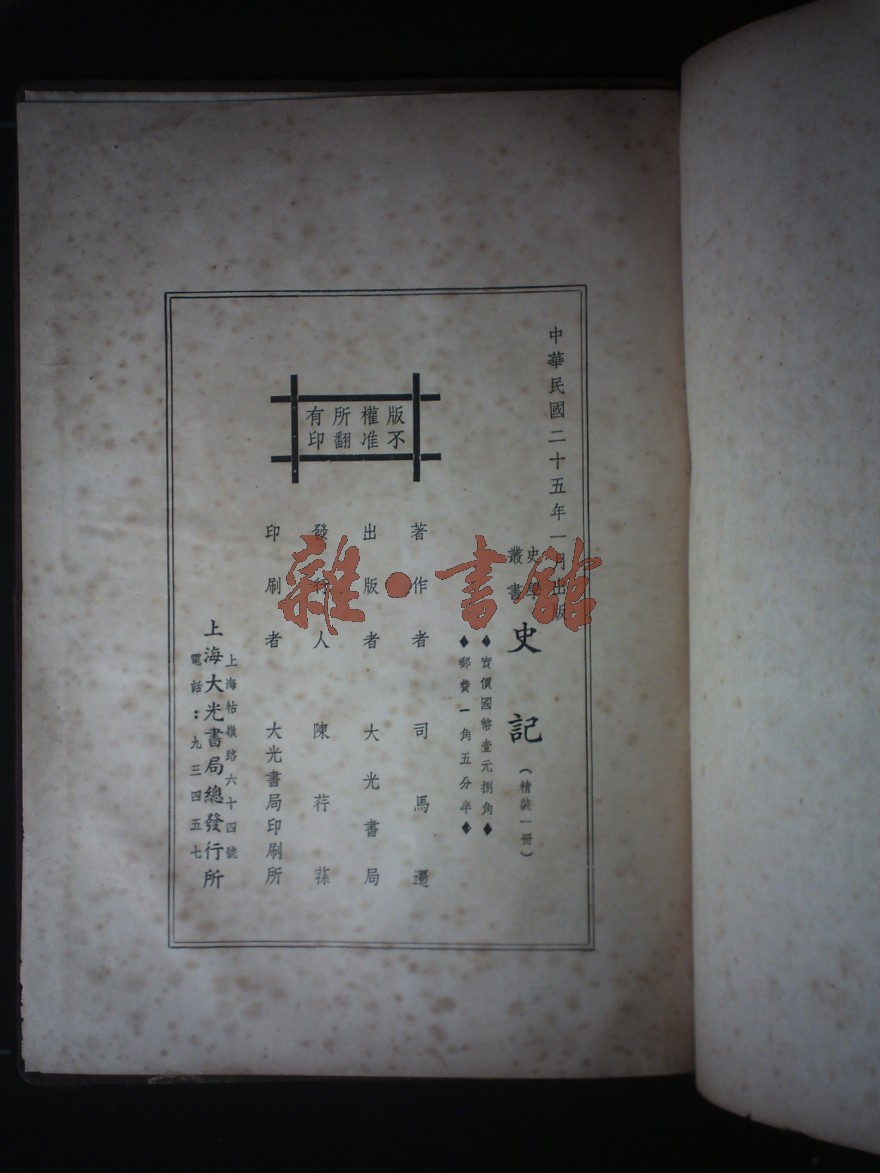 中華民國二十五年一月出版
史學
叢書
史記
（精裝一冊）
◆實價國幣壹元捌角◆
◆郵費一角五分半◆
版權所有
不准翻印
著作者 司馬遷
出版者 大光書局
發行人 陳荇蓀
印刷者 大光書局印刷所
上海牯嶺路六十四號
上海大光書局總發行所
電話：九三四五七
雜·書館